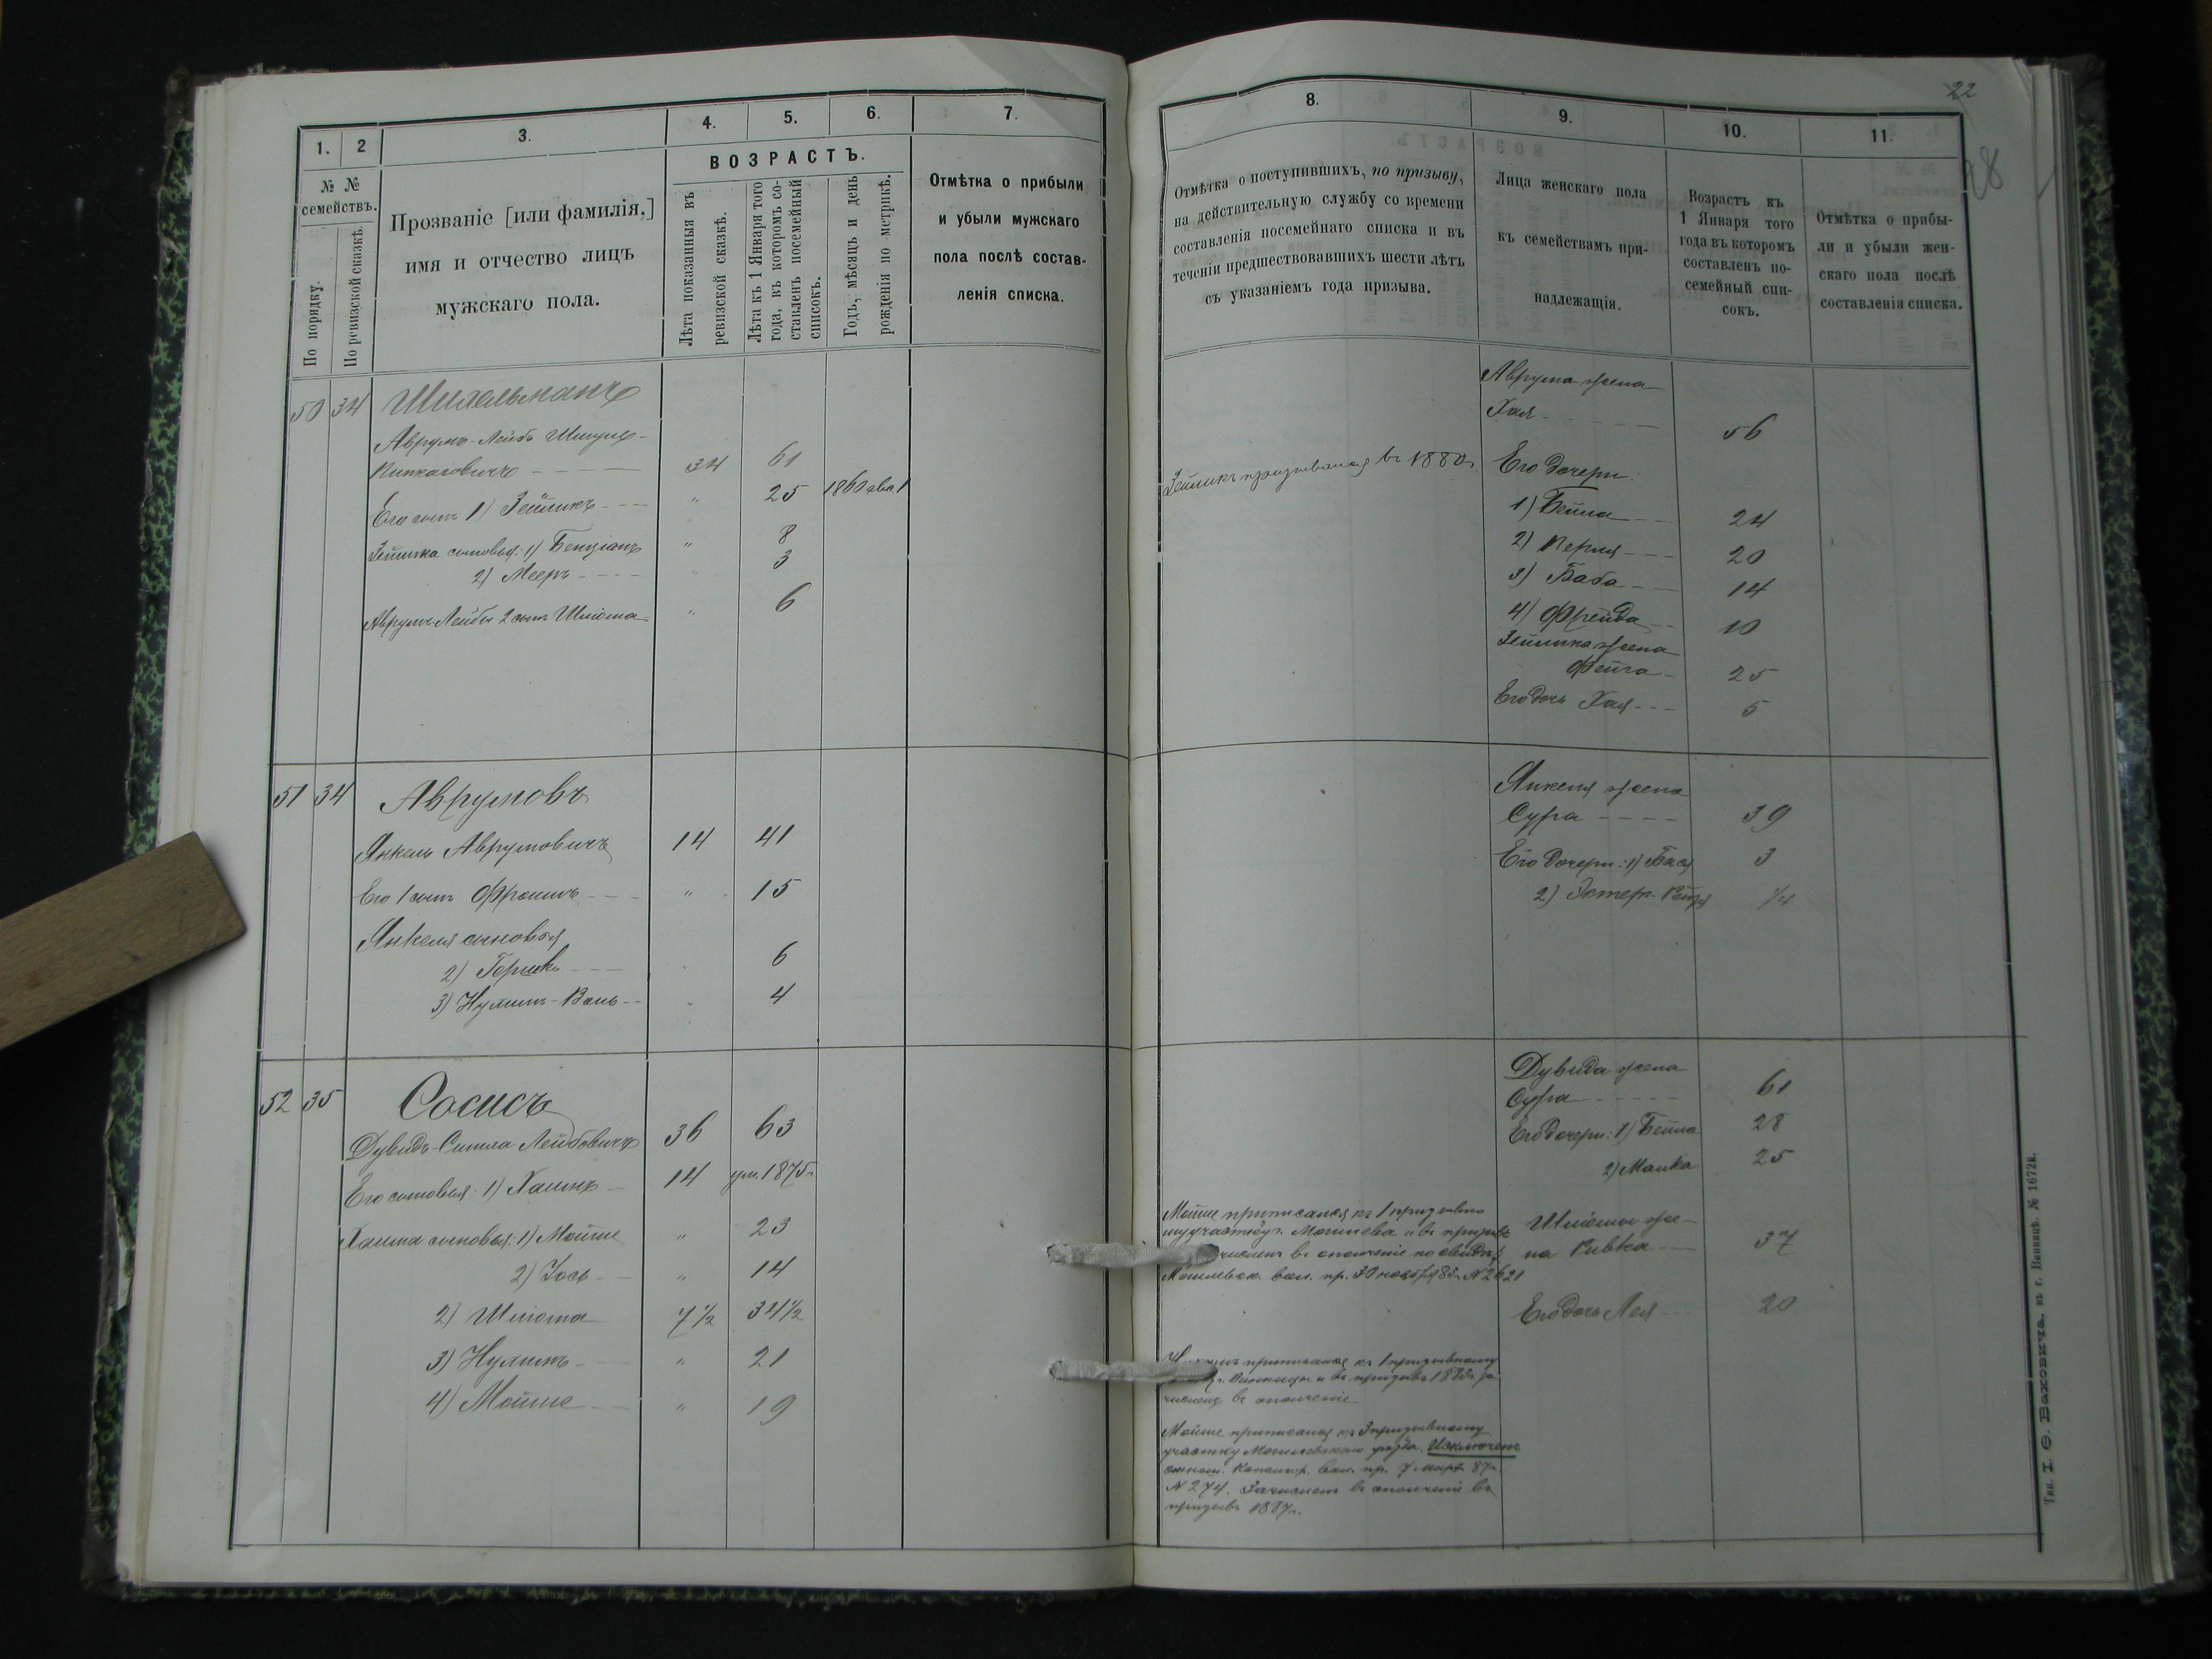 1.
2
3.
4.
5.
6.
7.
№ №
семействъ.
По порядку.
По ревизской сказкѣ.
Прозваніе [или фамилія,]
имя и отчество лицъ
мужскаго пола.
ВОЗРАСТЪ.
Лѣта показанныя въ
ревизской сказкѣ.
Лѣта къ 1 Января того
года, въ которомъ со-
ставленъ посемейный
списокъ.
Годъ, мѣсяцъ и день
рожденія по метрикѣ.
Отмѣтка о прибыли
и убыли мужскаго
пола послѣ состав-
ленія списка.
50 34
Аврумъ-Лейбъ
Пинкасовичъ 34 61
Его сынъ 1) Зейликъ 25 1860
Зейлика сыновья: 1) Бенціанъ " 8
2) Мееръ " 3
Аврумъ Лейбы 2 сынъ Шліома " 6
51 34 Аврумовъ
Янкель Аврумовичъ 14 41
Его 1 сынъ Фроимъ " 15
Янкеля сыновья
2) Гершко 6
3) Нухимъ- " 4
52 35 Сосисъ
Дувидъ-Симха Лейбовичъ 36 63
Его сыновья: 1) Хаимъ 14 ум. 1875 г.
Хаима сыновья: 1) Мойше " 23
2) Іось " 14
2) Шліома 7½ 34½
3) Нухимъ " 21
4) Мойше " 19
22
8.
9.
10.
11.
Отмѣтка о поступившихъ, по призыву,
на дѣйствительную службу со времени
составленія посемейнаго списка и въ
теченіи предшествовавшихъ шести лѣтъ
съ указаніемъ года призыва.
Лица женскаго пола
къ семействамъ при-
надлежащія.
Возрастъ къ
1 Января того
года въ которомъ
составленъ по-
семейный спи-
сокъ.
Отмѣтка о прибы-
ли и убыли жен-
скаго пола послѣ
составленія списка.
Аврума жена
Хая 56
Зейликъ призывался въ 1880 г.
Его дочери:
1) Бейла 24
2) Перля 20
3) Баба 14
4) Фрейда 10
Зейлика жена
Фейга 25
Его дочь Хая 5
Янкеля жена
Сура 39
Его дочери: 1) Бася 3
2) Эстеръ-
Дувида жена
Сура 61
Его дочери: 1) Бейла 28
2) Малка 25
Мойше приписался къ 1 призывно
му участку г. Могилева и въ призывѣ
въ ополченіе по
Могилевск. вол. пр. 30 ноября № 2621
Шліомы же-
на Ривка 37
Его дочь Лея 20
приписался къ 1 призывному
Винницы и въ призывъ за
численъ въ ополченіе
Мойше приписался къ 3 призывному
участку Могилевскаго уѣзда. Исключенъ
вол. пр. 7 март. 87 г.
№ 274. Зачисленъ въ ополченіе въ
призывъ 1887 г.
Тип. І. Ѳ. Баховича, въ г. Винницѣ. № 1672и.